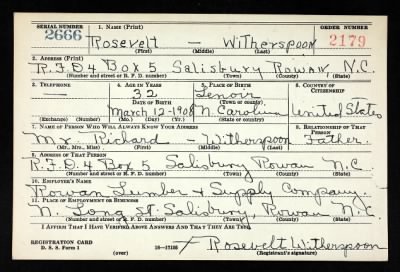 SERIAL NUMBER 1. NAME (Print) ORDER NUMBER
2666 Rosevelt — Witherspoon 2179
(First) (Middle) (Last)
2. ADDRESS (Print)
R.F.D4 Box 5 Salisbury Rowan N.C.
(Number and street or R. F. D. number) (Town) (County) (State)
3. TELEPHONE 4. AGE IN YEARS 5. PLACE OF BIRTH 6. COUNTRY OF CITIZENSHIP
— 32 Lenoir
DATE OF BIRTH (Town or county)
March 12-1908 N Carolina United States
(Exchange) (Number) (Mo.) (Day) (Yr.) (State or country)
7. NAME OF PERSON WHO WILL ALWAYS KNOW YOUR ADDRESS 8. RELATIONSHIP OF THAT PERSON
Mr. Richard — Witherspoon Father
(Mr., Mrs., Miss) (First) (Middle) (Last)
9. ADDRESS OF THAT PERSON
R.F.D4 Box 5 Salisbury Rowan N.C
(Number and street or R. F. D. number) (Town) (County) (State)
10. EMPLOYER'S NAME
Rowan Lumber & Supply Company.
11. PLACE OF EMPLOYMENT OR BUSINESS
N. Long St. Salisbury, Rowan N.C.
(Number and street or R. F. D. number) (Town) (County) (State)
I AFFIRM THAT I HAVE VERIFIED ABOVE ANSWERS AND THAT THEY ARE TRUE.
REGISTRATION CARD
D. S. S. Form 1 (over) 16—17105 Rosevelt Witherspoon
(Registrant's signature)